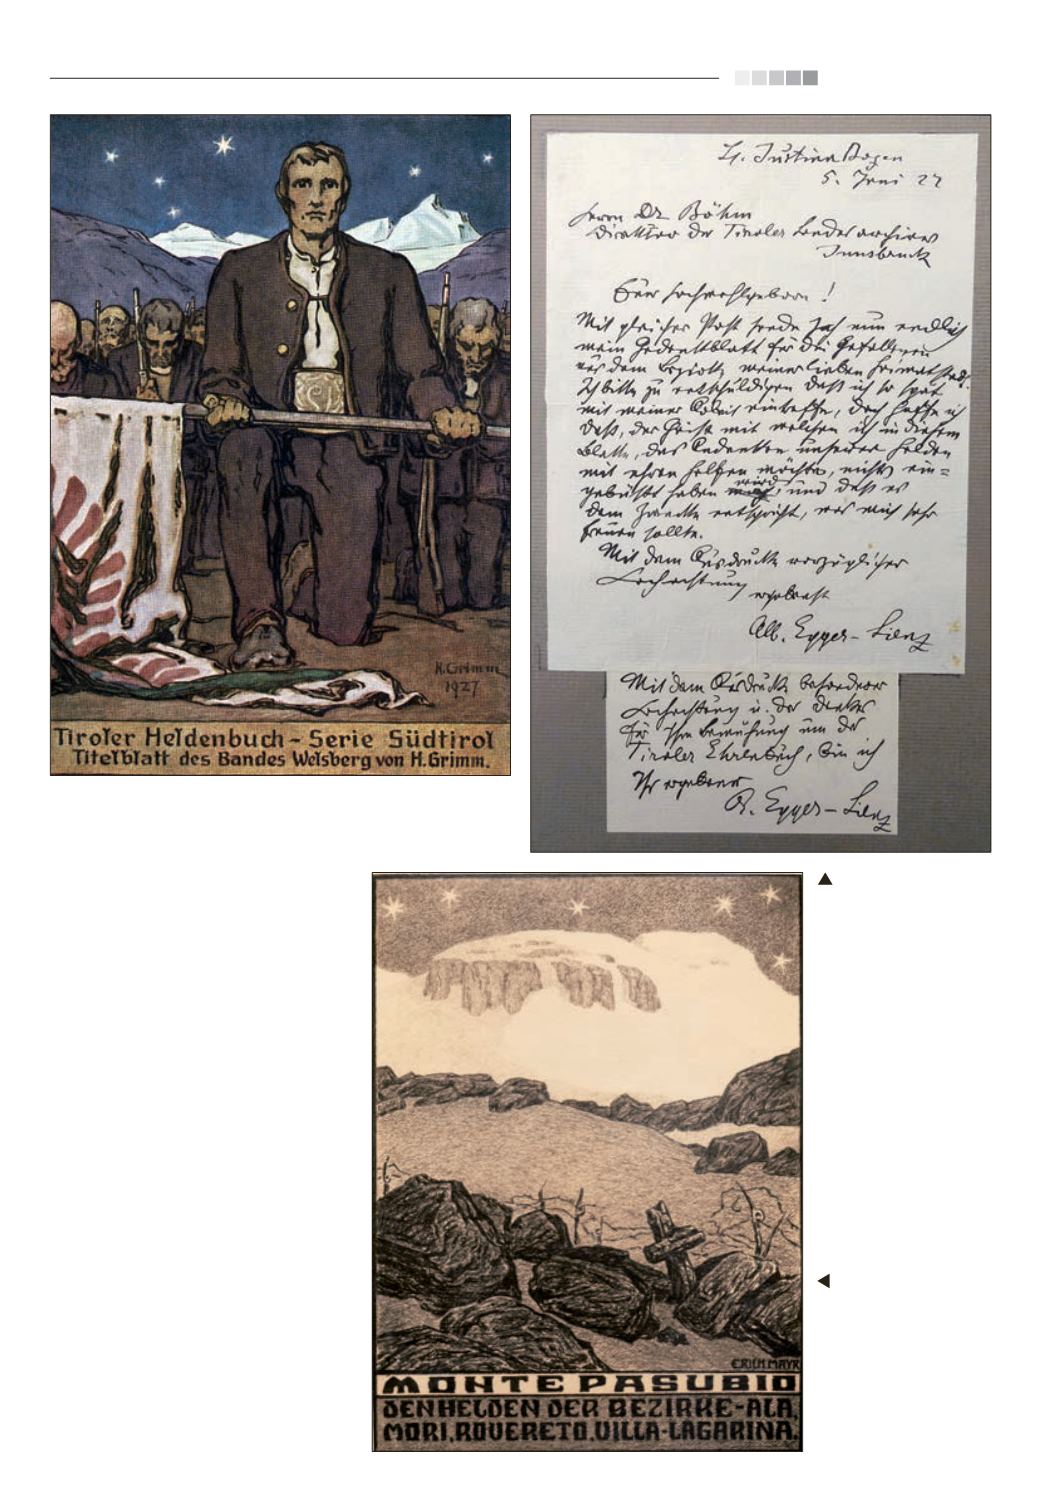 H. Grimm
1927
Tiroler Heldenbuch – Serie Südtirol
Titelblatt des Bandes Welsberg von H. Grimm.
St. Justina Bozen
5. Juni 27
Herrn Dr. Böhm
Direktor des Tiroler Landesarchives
Innsbruck
Euer Hochwohlgeboren!
Mit gleicher Post sende ich nun endlich
mein Gedenkblatt für die Gefallenen
aus dem Bezirk meiner lieben Heimatstadt.
Ich bitte zu entschuldigen daß ich so spät
mit meiner Arbeit eintreffe, doch hoffe ich
daß, der Geist mit welchem ich in diesem
Blatte, das Andenken unserer Helden
mit ehren helfen möchte, nichts ein=
gebüßt haben wird, und daß es
dem Zwecke entspricht, was mich sehr
freuen sollte.
Mit dem Ausdrucke vorzüglicher
Hochachtung
ergebenst
Alb. Egger-Lienz
Mit dem Ausdruck besonderer
Hochachtung u. des Dankes
für Ihre Bemühung um das
Tiroler Ehrenbuch, bin ich
Ihr ergebener
A. Egger-Lienz
ERICH MAYR
MONTE PASUBIO
DEN HELDEN DER BEZIRKE-ALA,
MORI, ROVERETO, VILLA-LAGARINA.